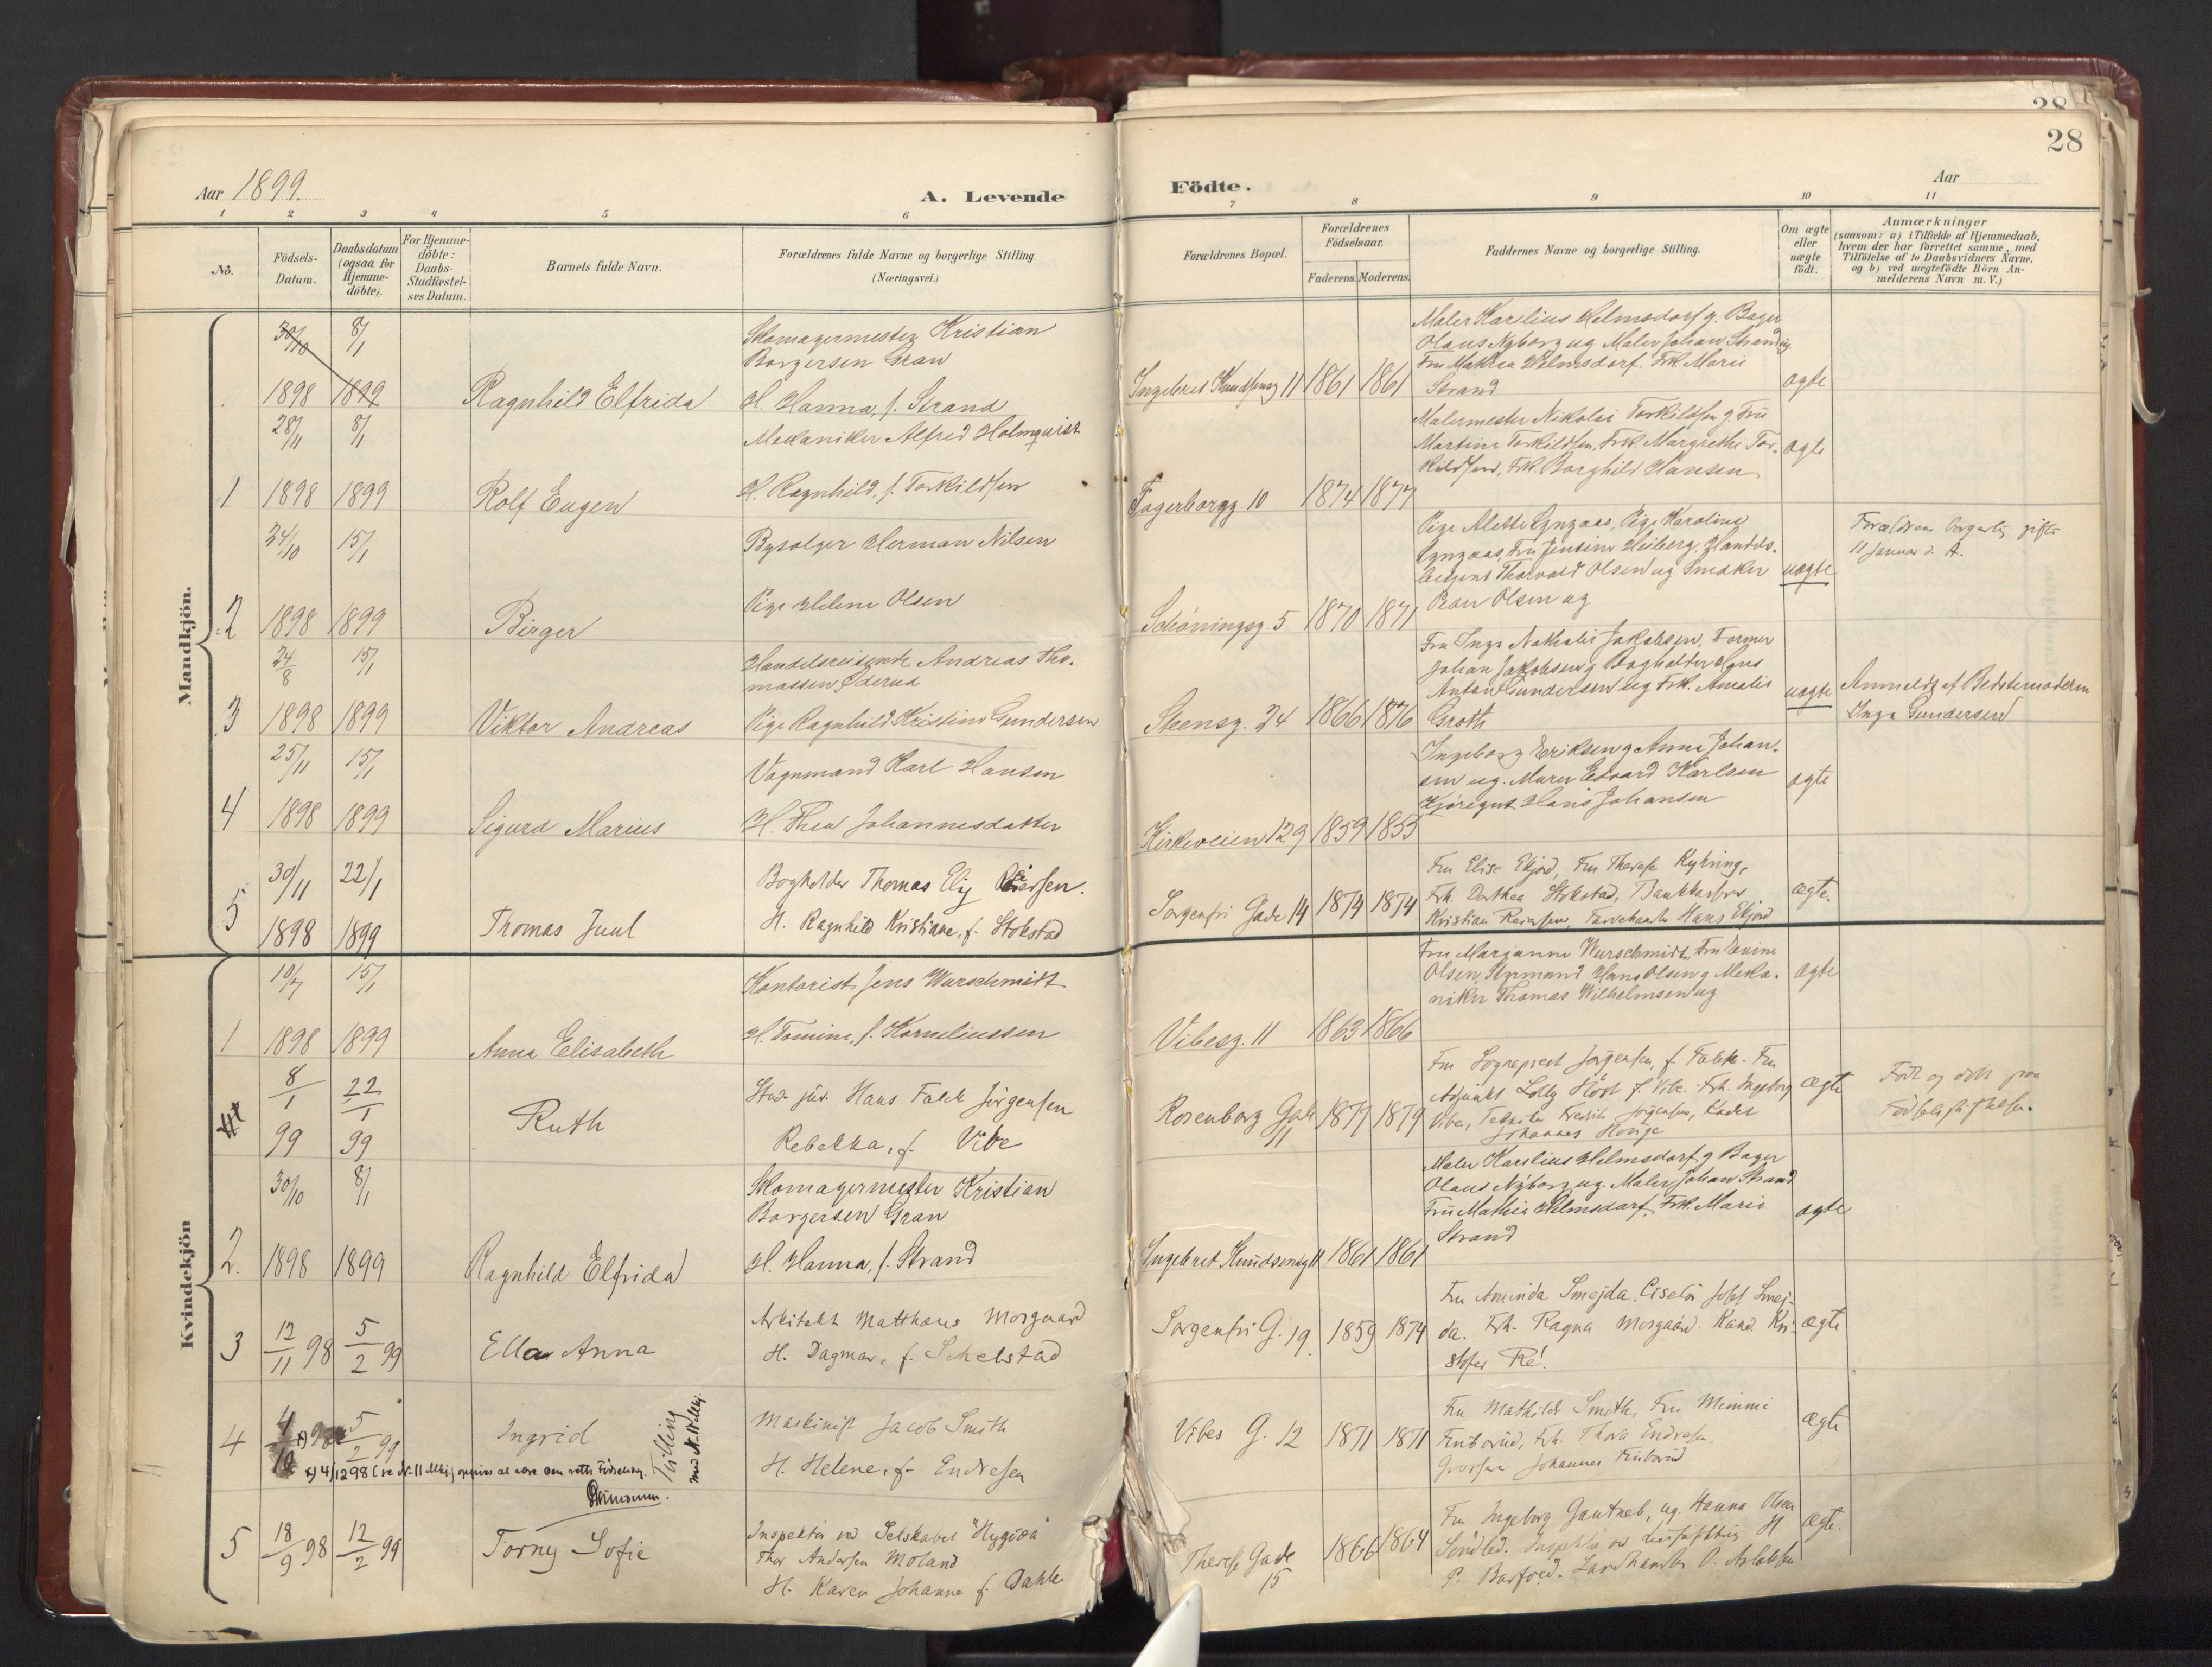 28
28
Aar 1899.
A. Levende
Födte.
Aar
1 2 3 4 5 6 7 8 9 10 11
No.
Födsels-
Datum.
Daabsdatum
(ogsaa for
Hjemme-
döbte).
For Hjemme-
döbte:
Daabs-
Stadfæstel-
ses Datum.
Barnets fulde Navn.
Forældrenes fulde Navne og borgerlige Stilling.
(Næringsvei.)
Forældrenes Bopæl.
Forældrenes
Födselsaar.
Faderens. Moderens.
Faddernes Navne og borgerlige Stilling.
Om ægte
eller
uægte
födt.
Anmærkninger
(saasom: a) i Tilfælde af Hjemmedaab,
hvem der har forrettet samme, med
Tilföielse af to Daabsvidners Navne,
og b) ved uægtefödte Börn An-
melderens Navn m.V.)
Mandkjön.
30/10 8/1
1898 1899
Ragnhild Elfrida
Skomagermester Kristian
Borgersen Gran
H. Hanna, f. Strand
Ingebret Knudsensg 11 1861 1861
Maler Karelius Helmsdorf g. Bager
Olaus Nyborg ug Maler Johan Strand ug.
Fru Mathea Helmsdorf. Frk. Marie
Strand
ægte
1
28/11 8/1
1898 1899
Rolf Eugen
Mekaniker Alfred Holmqvist
H. Ragnhild, f. Torkildsen
Fagerborgg. 10 1874 1877
Malermester Nikolai Torkildsen g. Fru
Martine Torkildsen, Frk. Margrethe Tor-
kildsen, Frk. Borghild Hansen
ægte
2
24/10 15/1
1898 1899
Birger
Bysælger Herman Nilsen
Pige Helene Olsen
Schöningsg. 5 1870 1871
Pige Alette Lyngaas, Pige Karoline
Lyngaas, Fru Jensine Heiberg, Handels-
betjent Thorvald Olsen ug Snedker
Olsen ug
uægte
Forældrene borgerlig gifte
11 Januar d. A.
3
24/8 15/1
1898 1899
Viktor Andreas
Handelsreisende Andreas Tho-
massen Öderud
Pige Ragnhild Kristine Gundersen
Steensg. 24 1866 1876
Fru Inga Nathalie Jakobsen, Former
Johan Jakobsen g Bogholder Hans
Anton Gundersen ug Frk. Amalie
Groth
uægte
Anmeldt af Bedstemoderen
Inga Gundersen
4
25/11 15/1
1898 1899
Sigurd Marius
Vognmand Karl Hansen
H. Thea Johannesdatter
Kirkeveien 129 1859 1855
Ingeborg Eriksen g Anne Johan-
sen ug. Murer Edvard Karlsen
Kjöregut Hans Johansen
ægte
5
30/11 22/1
1898 1899
Thomas Juul
Bogholder Thomas Elij Reiersen.
H. Ragnhild Kristiane, f. Stokstad
Sorgenfri Gade 14 1874 1874
Fru Elise Ekjord, Fru Therese Kyhring,
Frk. Dorthea Stokstad, Bankkasserer
Kristian Reiersen, Farvehandler Hans Ekjord
ægte.
Kvindekjön
1
10/7 15/1
1898 1899
Anna Elisabeth
Kontorist Jens Wurschmidt
H. Tomine, f. Korneliussen
Vibesg. 11 1863 1866
Fru Marjanne Wurschmidt, Fru Evine
Olsen, Styrmand Hans Olsen g Meka-
niker Thomas Wilhelmsen ug
ægte
8/1 22/1
99 99
Ruth
Stud. jur. Hans Falck Jörgensen
Rebekka, f. Vibe
Rosenborg Gade
11
1877 1879
Fru Sogneprest Jörgensen, f. Falck. Fru
Adjunkt Lolly Höst f. Vibe. Frk. Ingeborg
Vibe, Fredrik Jörgensen, Kadet
Johannes
ægte
Födt og döbt paa
Födselsstiftelsen.
2.
30/10 8/1
1898 1899
Ragnhild Elfrida
Skomagermester Kristian
Borgersen Gran
H. Hanna, f. Strand
Ingebret Knudsensg 11 1861 1861
Maler Karelius Helmsdorf g Bager
Olaus Nyborg ug. Maler Johan Strand
Fru Mathea Helmsdorf, Frk. Marie
Strand
ægte
3
12/11 98 5/2 99
Ella Anna
Arkitekt Matthæus Morgaard
H. Dagmar, f. Schelstad
Sorgenfri G. 19 1859 1874
Fru Aminda Smejda. Ciselör Josef Smej-
da. Frk. Ragna Morgaard. Kand. Kri-
stofer Ré.
ægte
4
4/10 x) 98 5/2 99
Ingrid
Tvilling
med N. 11 Mkj.
x) 4/12 98 (se N. 11 Mkj.) opgives at være den rette Födselsdag.
Maskinist Jacob Smith
H. Helene, f. Endresen
Vibes G. 12 1871 1871
Fru Mathilde Smith, Fru Mimmi
Finborud, Frk. Thora Endresen.
Grosserer Johannes Finborud
ægte
5
18/9 98 12/2 99
Torny Sofie
Inspektör ved Selskabet "Hygiæa"
Thor Andersen Moland
H. Karen Johanne f. Dahle
Therese Gade
15
1866 1864
Fru Ingeborg Gautneb, ug. Hanna Olsen
H
P. Barfod. Landhandler O. Aslaksen
ægte.